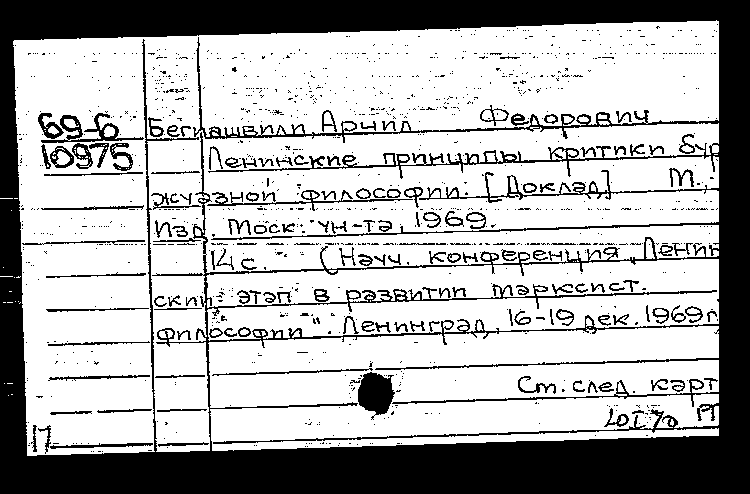 69-6 Бегиашвили, Арчил Федорович
10975 Ленинские принципы критики бур
жуазной философии. [Доклад] М.,
Изд. Моск. ун-та, 1969.
14 с. (Науч. конференция „Ленин
ский этап в развитии марксист.
философии". Ленинград, 16-19 дек. 1969 г.
См. след. карт
П